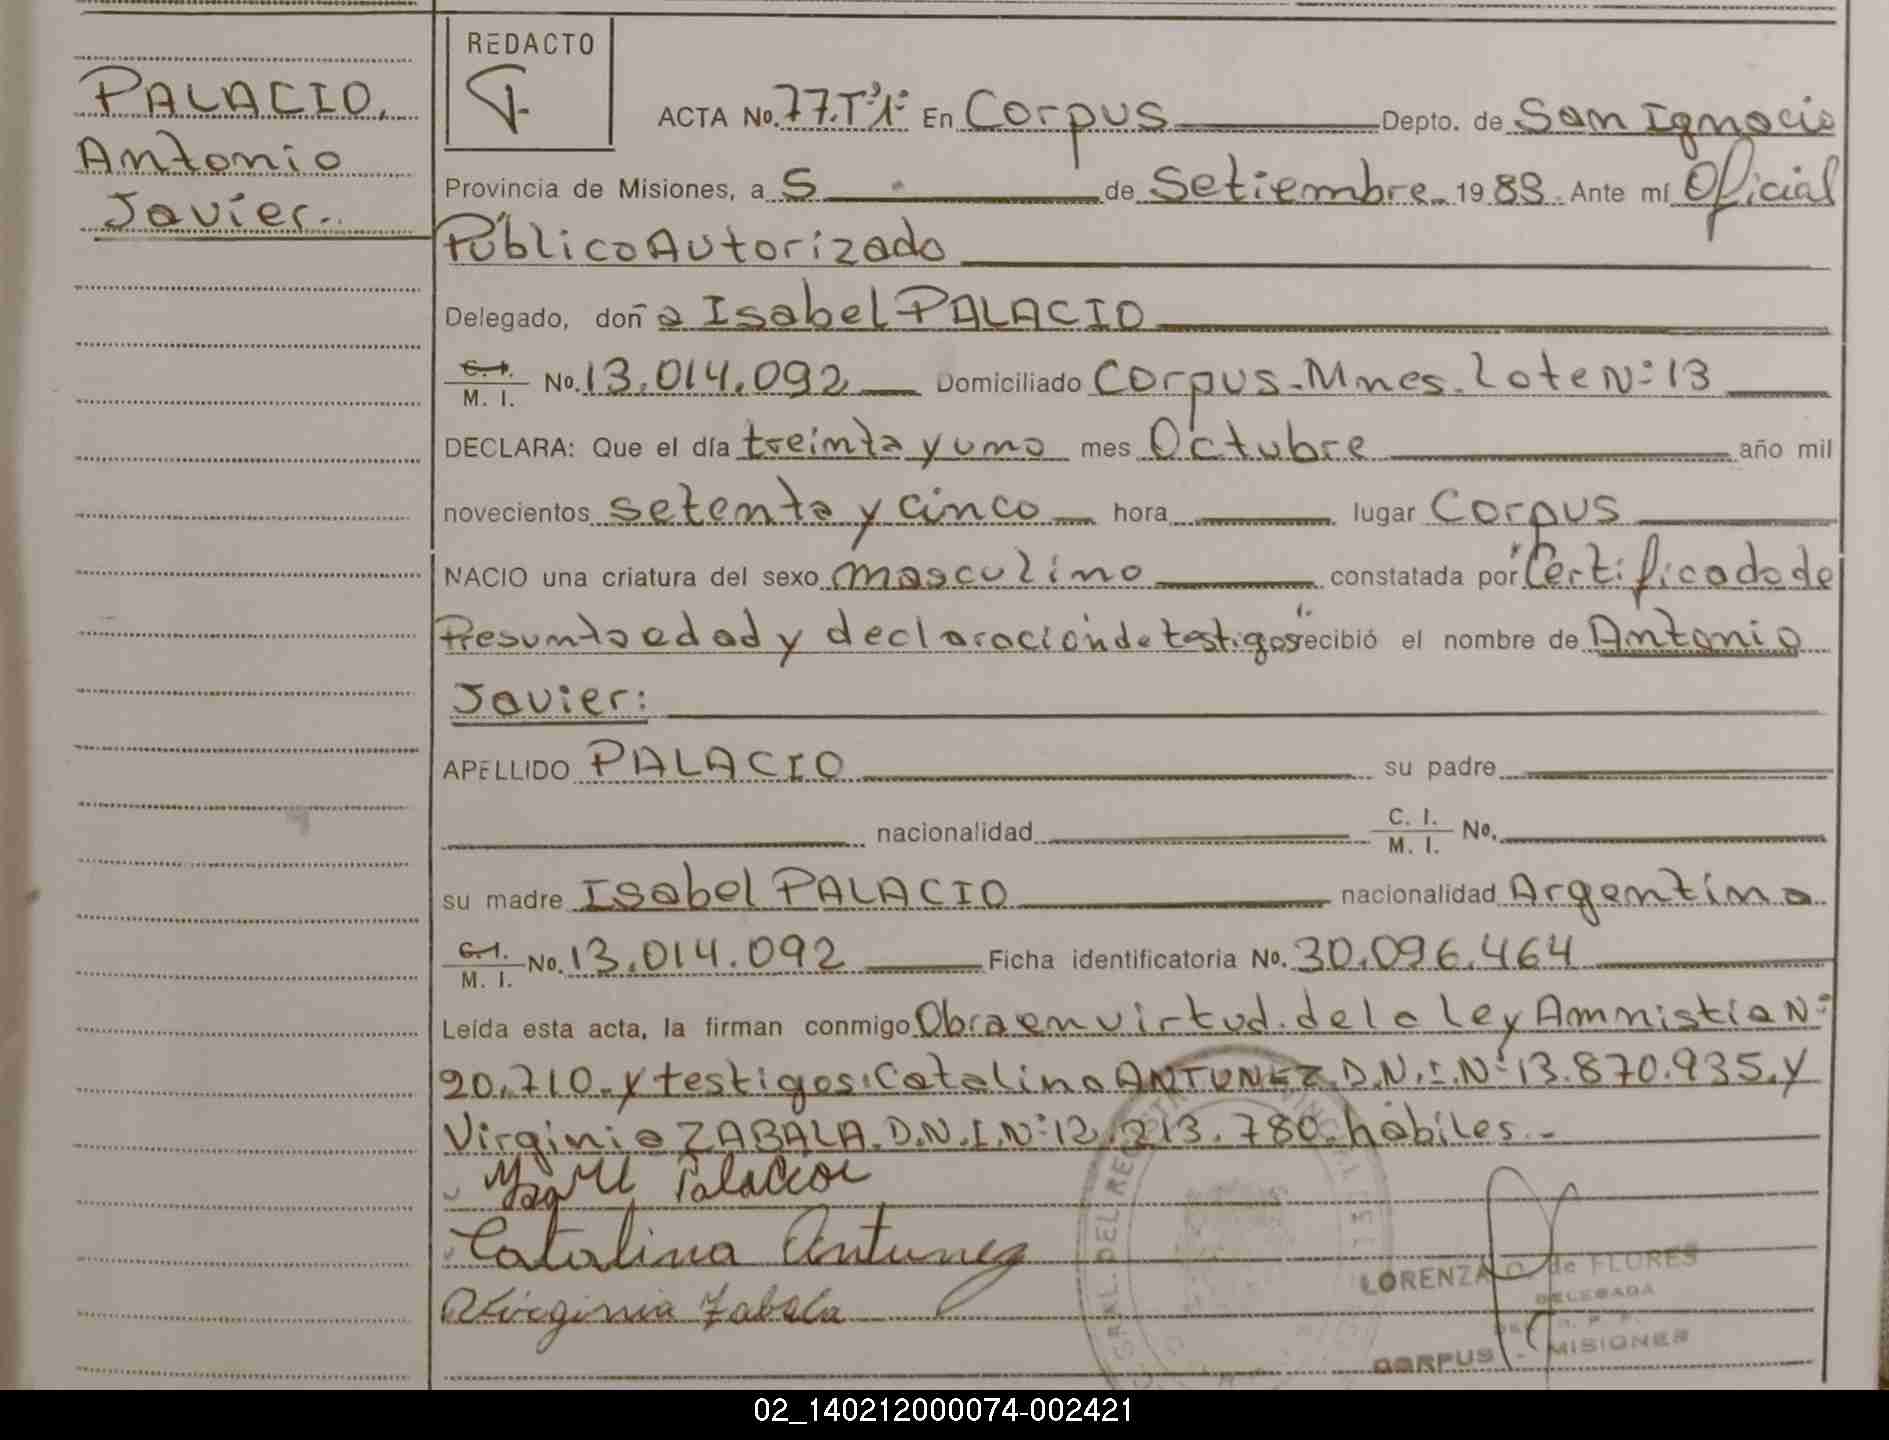 PALACIO,
Antonio
Javier..
REDACTO
ACTA No. 77.Tº1º En Corpus Depto. de San Ignacio
Provincia de Misiones, a 5 de Setiembre 1983. Ante mí Oficial
Público Autorizado
Delegado, doña Isabel PALACIO
C. I. / M. I. No. 13.014.092 Domiciliado Corpus-Mnes. Lote Nº 13
DECLARA: Que el día treinta y uno mes Octubre año mil
novecientos setenta y cinco hora lugar Corpus
NACIO una criatura del sexo masculino constatada por Certificado de
Presunta edad y declaración de testigos recibió el nombre de Antonio
Javier:
APELLIDO PALACIO su padre
nacionalidad C. I. / M. I. No.
su madre Isabel PALACIO nacionalidad Argentina
C. I. / M. I. No. 13.014.092 Ficha identificatoria No. 30.096.464
Leída esta acta, la firman conmigo Obra en virtud de la ley Amnistia Nº
20.710.y testigos: Catalina ANTUNEZ.D.N.I.Nº 13.870.935.y
Virginia ZABALA.D.N.I.Nº 12.213.780.hábiles.-
Catalina Antunez
Virginia Zabala
LORENZA de FLORES
DELEGADA
CORPUS - MISIONES
02_140212000074-002421